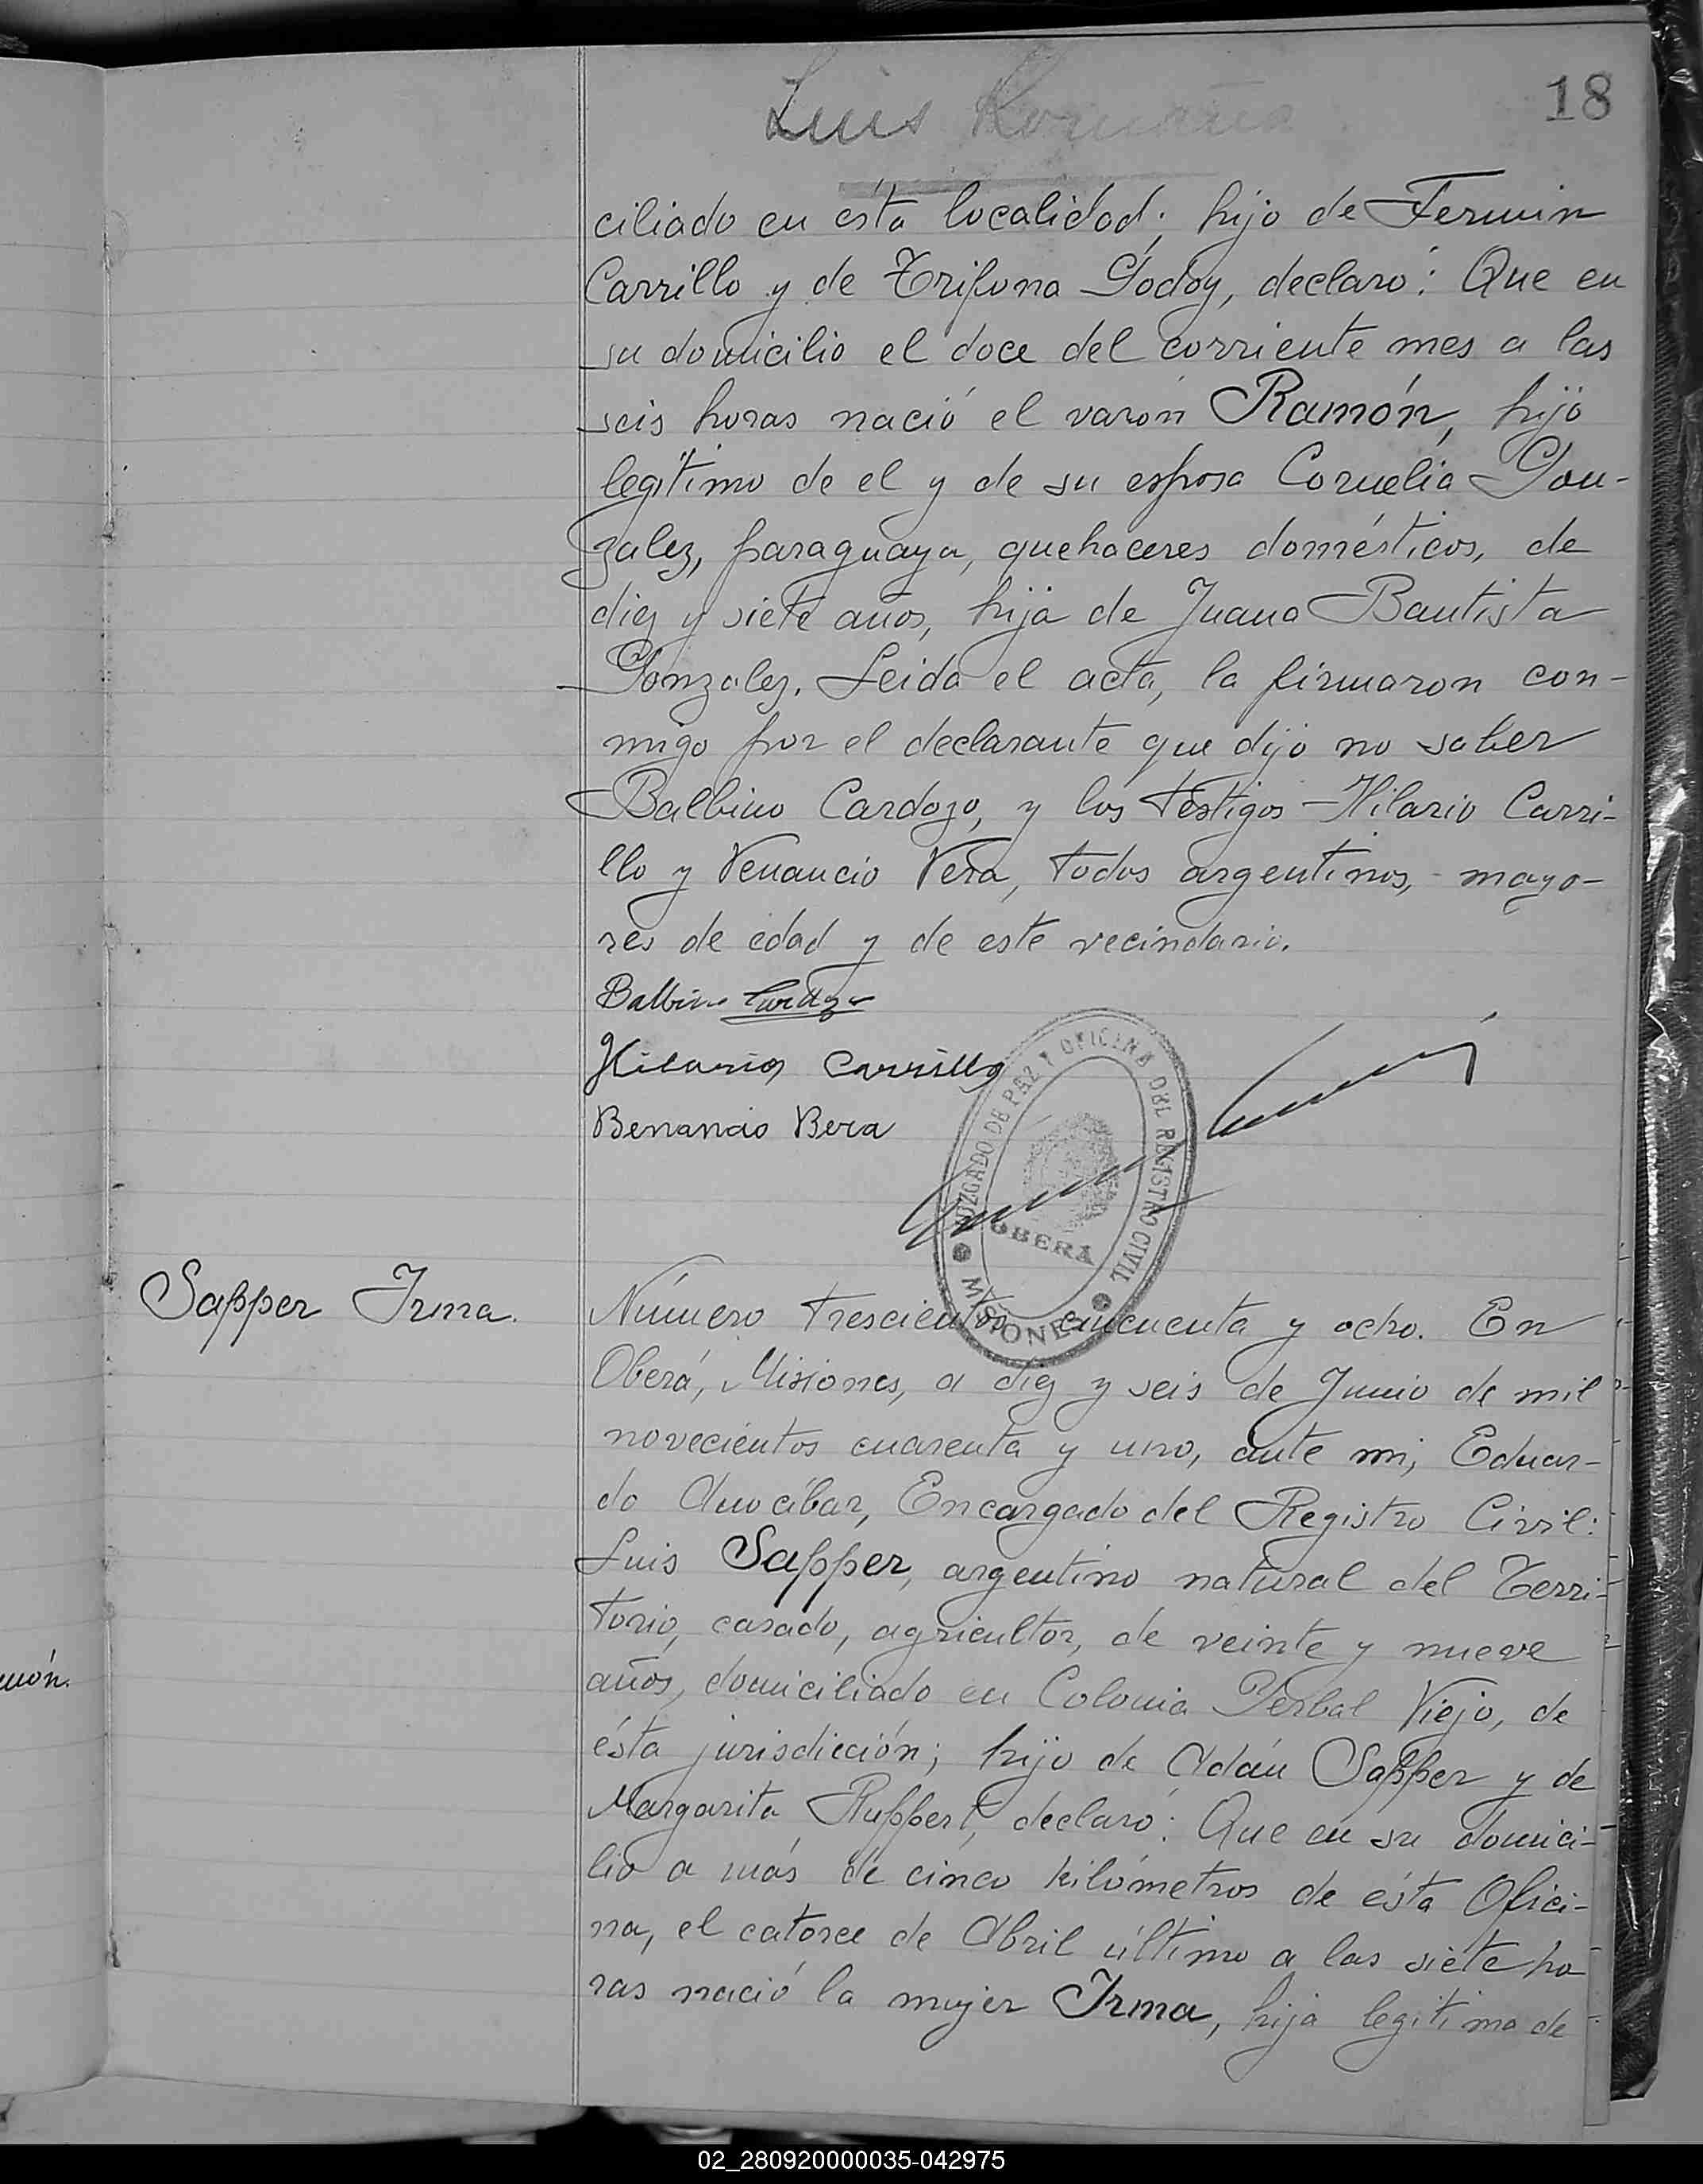 Luis Romaña
18
ciliado en ésta localidad; hijo de Fermin
Carrillo y de Trifona Godoy, declaró: Que en
su domicilio el doce del corriente mes a las
seis horas nació el varón Ramón, hijo
legítimo de el y de su esposa Cornelia Gon-
zalez, paraguaya, quehaceres domésticos, de
diez y siete años, hija de Juana Bautista
Gonzalez. Leida el acta, la firmaron con-
migo por el declarante que dijo no saber
Balbino Cardozo, y los testigos Hilario Carri-
llo y Venancio Vera, todos argentinos, mayo-
res de edad y de este vecindario.
Balbino Cardozo
Hilario Carrillo
Benancio Bera
JUZGADO DE PAZ Y OFICINA DEL REGISTRO CIVIL
OBERÁ
MISIONES
Sapper Irma.
Número trescientos cincuenta y ocho. En
Oberá, Misiones, a diez y seis de Junio de mil
novecientos cuarenta y uno, ante mi, Eduar-
do Amocibar, Encargado del Registro Civil:
Luis Sapper, argentino natural del Terri-
torio, casado, agricultor, de veinte y nueve
años, domiciliado en Colonia Yerbal Viejo, de
ésta jurisdicción; hijo de Adán Sapper y de
Margarita Ruppert, declaró: Que en su domici-
lio a más de cinco kilómetros de ésta Ofici-
na, el catorce de Abril último a las siete ho-
ras nació la mujer Irma, hija legitima de
món.
02_280920000035-042975